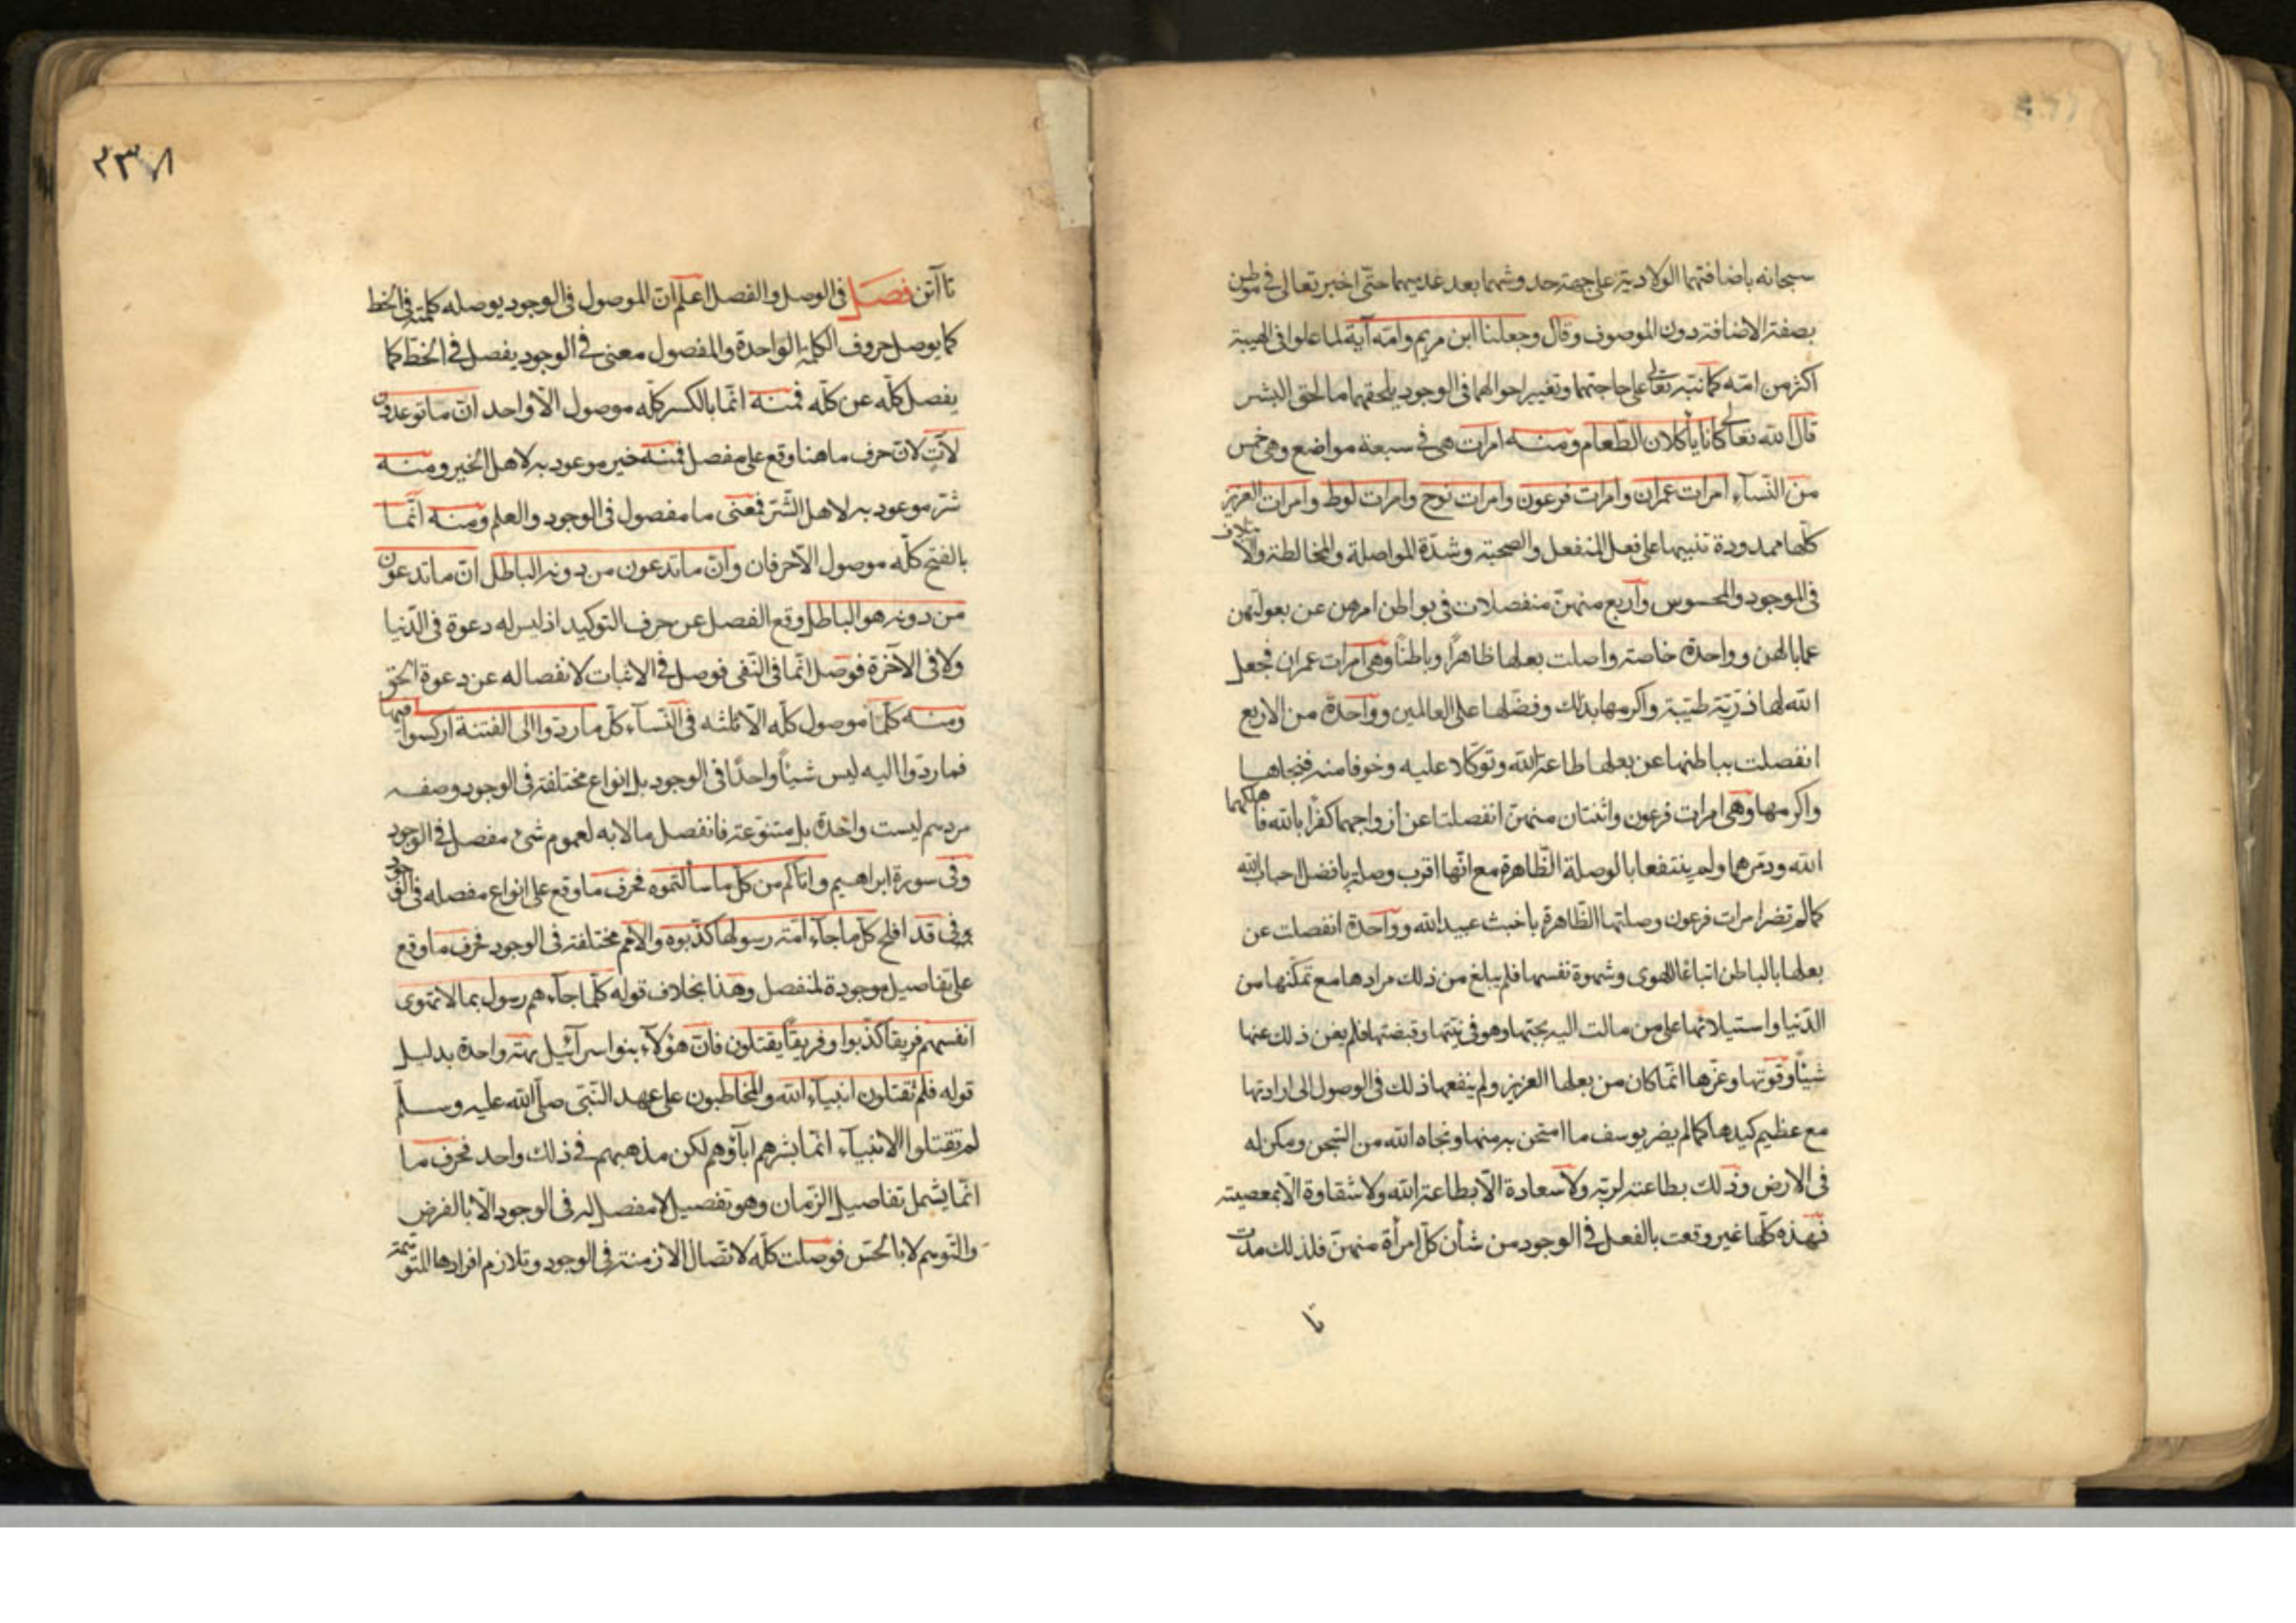 سبحانه باضافتهما الولادية على جهة حدوثهما بعد عدمهما حتى اخبر تعالى فى موطن
بصفة الاضافة دون الموصوف وقال وجعلنا ابن مريم وامه آية لما علوا فى الهيبة
اكثر من امته كما نبه تعالى على حاجتهما وتغيير احوالهما فى الوجود يلحقهما ما لحق البشر
قال الله تعالى كانا يأكلان الطعام ومنه امرات هى فى سبعة مواضع وهى خمس
من النسآء امرات عمران وامرات فرعون وامرات نوح وامرات لوط وامرات العزيز
كلها ممدودة تنبيها على فعل المنفعل والصحبة وشدة المواصلة والمخالطة والائتلاف
فى الوجود والمحسوس وآربع منهن منفصلات فى بواطن امرهن عن بعولتهن
عمابالهن وواحدة خاصة واصلت بعلها ظاهرا وباطنا وهى امرات عمران فجعل
الله لها ذرية طيبة واكرمها بذلك وفضلها على العالمين وواحدة من الاربع
انفصلت بباطنها عن بعلها طاعة لله وتوكلا عليه وخوفا منه فنجاها
واكرمها وهى امرات فرعون واثنتان منهن انفصلتا عن ازواجهما كفرا بالله فاهلكهما
الله ودمرهما ولم ينتفعا بالوصلة الظاهرة مع انها اقرب وصلة بافضل احباب الله
كما لم تضر امرات فرعون وصلتها الظاهرة باخبث عبيد الله وواحدة انفصلت عن
بعلها بالباطن اتباعا للهوى وشهوة نفسها فلم يبلغ من ذلك مرادها مع تمكنها من
الدنيا واستيلائها على من مالت اليه بحبها وهو فى بيتها وقبضتها فلم يغن ذلك عنها
شيئا وقوتها وعزها انما كان من بعلها العزيز ولم ينفعها ذلك فى الوصول الى ارادتها
مع عظيم كيدها كما لم يضر يوسف ما امتحن به منها ونجاه الله من السجن ومكن له
فى الارض وذلك بطاعته لربه ولا سعادة الا بطاعة الله ولا شقاوة الا بمعصيته
فهذه كلها غير وقعت بالفعل فى الوجود من شأن كل امرأة منهن فلذلك مدت
تا
٢٣٧
تاآتن فصل فى الوصل والفصل اعلم ان الموصول فى الوجود يوصله كلمته فى الخط
كما يوصل حروف الكلمة الواحدة والمفصول معنى فى الوجود يفصل فى الخط كما
يفصل كله عن كله فمنه انما بالكسر كله موصول الا واحد ان ما توعدون
لآت لان حرف ما هنا وقع على مفصل فمنه خير موعود به لاهل الخير ومنه
شر موعود به لاهل الشر فمعنى ما مفصول فى الوجود والعلم ومنه انما
بالفتح كله موصول الا حرفان وان ما تدعون من دونه الباطل ان ما تدعون
من دونه هو الباطل وقع الفصل عن حرف التوكيد اذ ليس له دعوة فى الدنيا
ولا فى الآخرة فوصل انما فى النفى فوصل فى الاثبات لانفصاله عن دعوة الحق
ومنه كلما موصول كله الا ثلثه فى النسآء كل ما ردوا الى الفتنة اركسوا فيها
فما ردوا اليه ليس شيئا واحدا فى الوجود بل انواع مختلفة فى الوجود وصفه
مردهم ليست واحدة بل متنوعة فانفصل ما لانه لعموم شئ مفصل فى الوجود
وفى سورة ابراهيم واتاكم من كل ما سألتموه فحرف ما وقع على انواع مفصله فى الوجود
وفى قد افلح كل ما جآء امة رسولها كذبوه والامم مختلفة فى الوجود فحرف ما وقع
على تفاصيل موجودة لمنفصل وهذا بخلاف قوله كلما جآءهم رسول بما لا تهوى
انفسهم فريقا كذبوا وفريقا يقتلون فان هؤلآء بنوا اسرآئيل امة واحدة بدليل
قوله فلم تقتلون انبيآء الله والمخاطبون على عهد النبى صلى الله عليه وسلم
لم تقتلوا الانبيآء انما باشرهم اباؤهم لكن مذهبهم فى ذلك واحد فحرف ما
انما يشمل تفاصيل الزمان وهو تفصيل لا مفصل له فى الوجود الا بالفرض
والتوهم لا بالحس فوصلت كله لاتصال الازمنة فى الوجود وتلازم افرادها المتوهمة